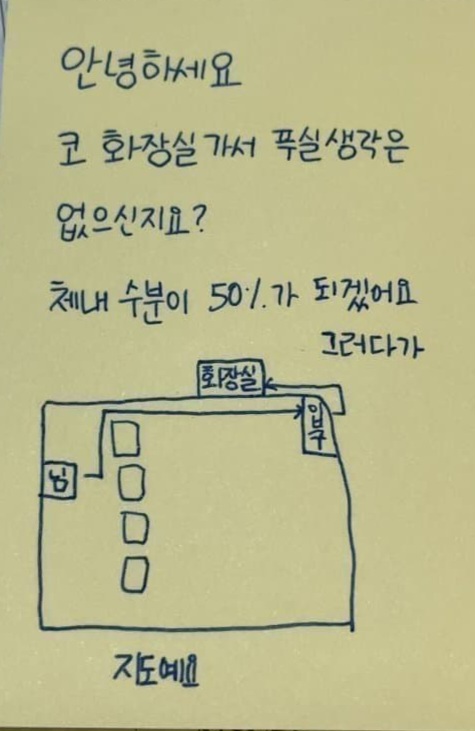 안녕하세요
코 화장실가서 푸실생각은
없으신지요?
체내 수분이 50%가 되겠어요
그러다가
화장실
입구
님
지도예요